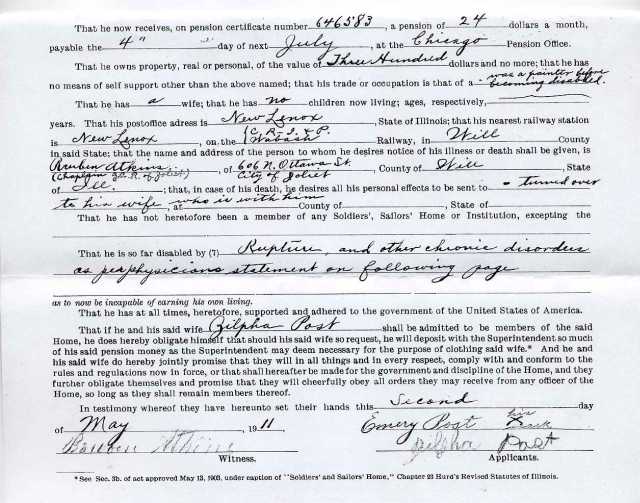 That he now receives, on pension certificate number 646583, a pension of 24 dollars a month,
payable the 4" day of next July, at the Chicago Pension Office.
That he owns property, real or personal, of the value of Three Hundred dollars and no more; that he has
no means of self support other than the above named; that his trade or occupation is that of a was a painter before
becoming disabled.
That he has a wife; that he has no children now living; ages, respectively,
years. That his postoffice adress is New Lenox, State of Illinois; that his nearest railway station
is New Lenox, on the C, R, I, & P. Wabash Railway, in Will County
in said State; that the name and address of the person to whom he desires notice of his illness or death shall be given, is
Reuben Atkins, of 606 N. Ottawa St. County of Will, State
(Chaplain G.A.R. of Joliet) City of Joliet
of Ill.; that, in case of his death, he desires all his personal effects to be sent to turned over
to his wife, who is with him, at County of, State of
That he has not heretofore been a member of any Soldiers', Sailors' Home or Institution, excepting the
That he is so far disabled by (7) Rupture, and other chronic disorders
as per physicians statement on following page
as to now be incapable of earning his own living.
That he has at all times, heretofore, supported and adhered to the government of the United States of America.
That if he and his said wife Zilpha Post shall be admitted to be members of the said
Home, he does hereby obligate himself that should his said wife so request, he will deposit with the Superintendent so much
of his said pension money as the Superintendent may deem necessary for the purpose of clothing said wife.* And he and
his said wife do hereby jointly promise that they will in all things and in every respect, comply with and conform to the
rules and regulations now in force, or that shall hereafter be made for the government and discipline of the Home, and they
further obligate themselves and promise that they will cheerfully obey all orders they may receive from any officer of the
Home, so long as they shall remain members thereof.
In testimony whereof they have hereunto set their hands this Second day
of May, 1911 Emery Post his mark
Atkins Zilpha Post
Witness. Applicants.
*See Sec. 3b. of act approved May 13, 1903, under caption of "Soldiers' and Sailors' Home," Chapter 23 Hurd's Revised Statutes of Illinois.